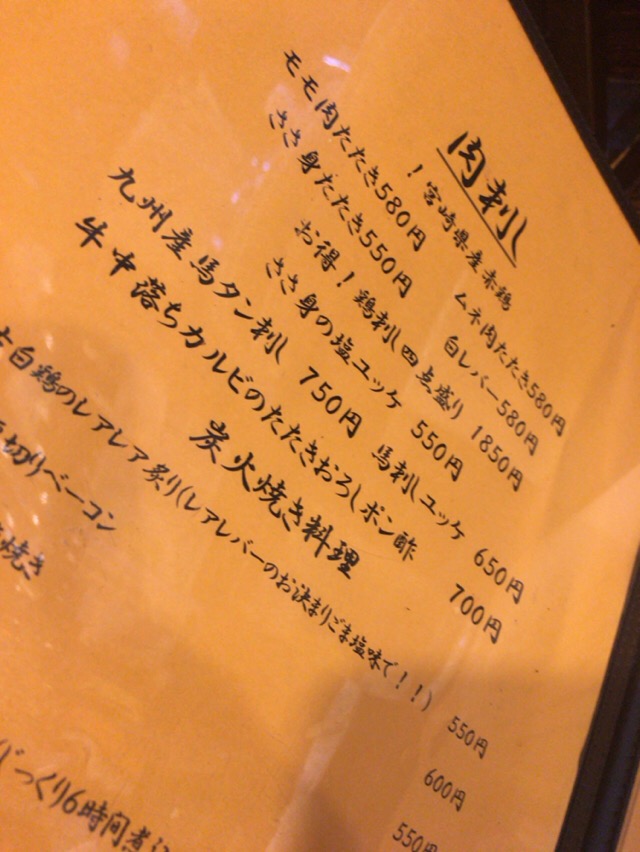 肉刺し
！宮崎県産赤鶏
モモ肉たたき580円 ムネ肉たたき580円
ささ身たたき550円 白レバー580円
お得！鶏刺し四点盛り 1850円
ささ身の塩ユッケ 550円
九州産馬タン刺し 750円 馬刺しユッケ 650円
牛中落ちカルビのたたきおろしポン酢 700円
炭火焼き料理
白鶏のレアレア炙り(レアレバーのお決まりごま塩味で！！) 550円
切りベーコン 600円
焼き 550円
じっくり6時間煮込